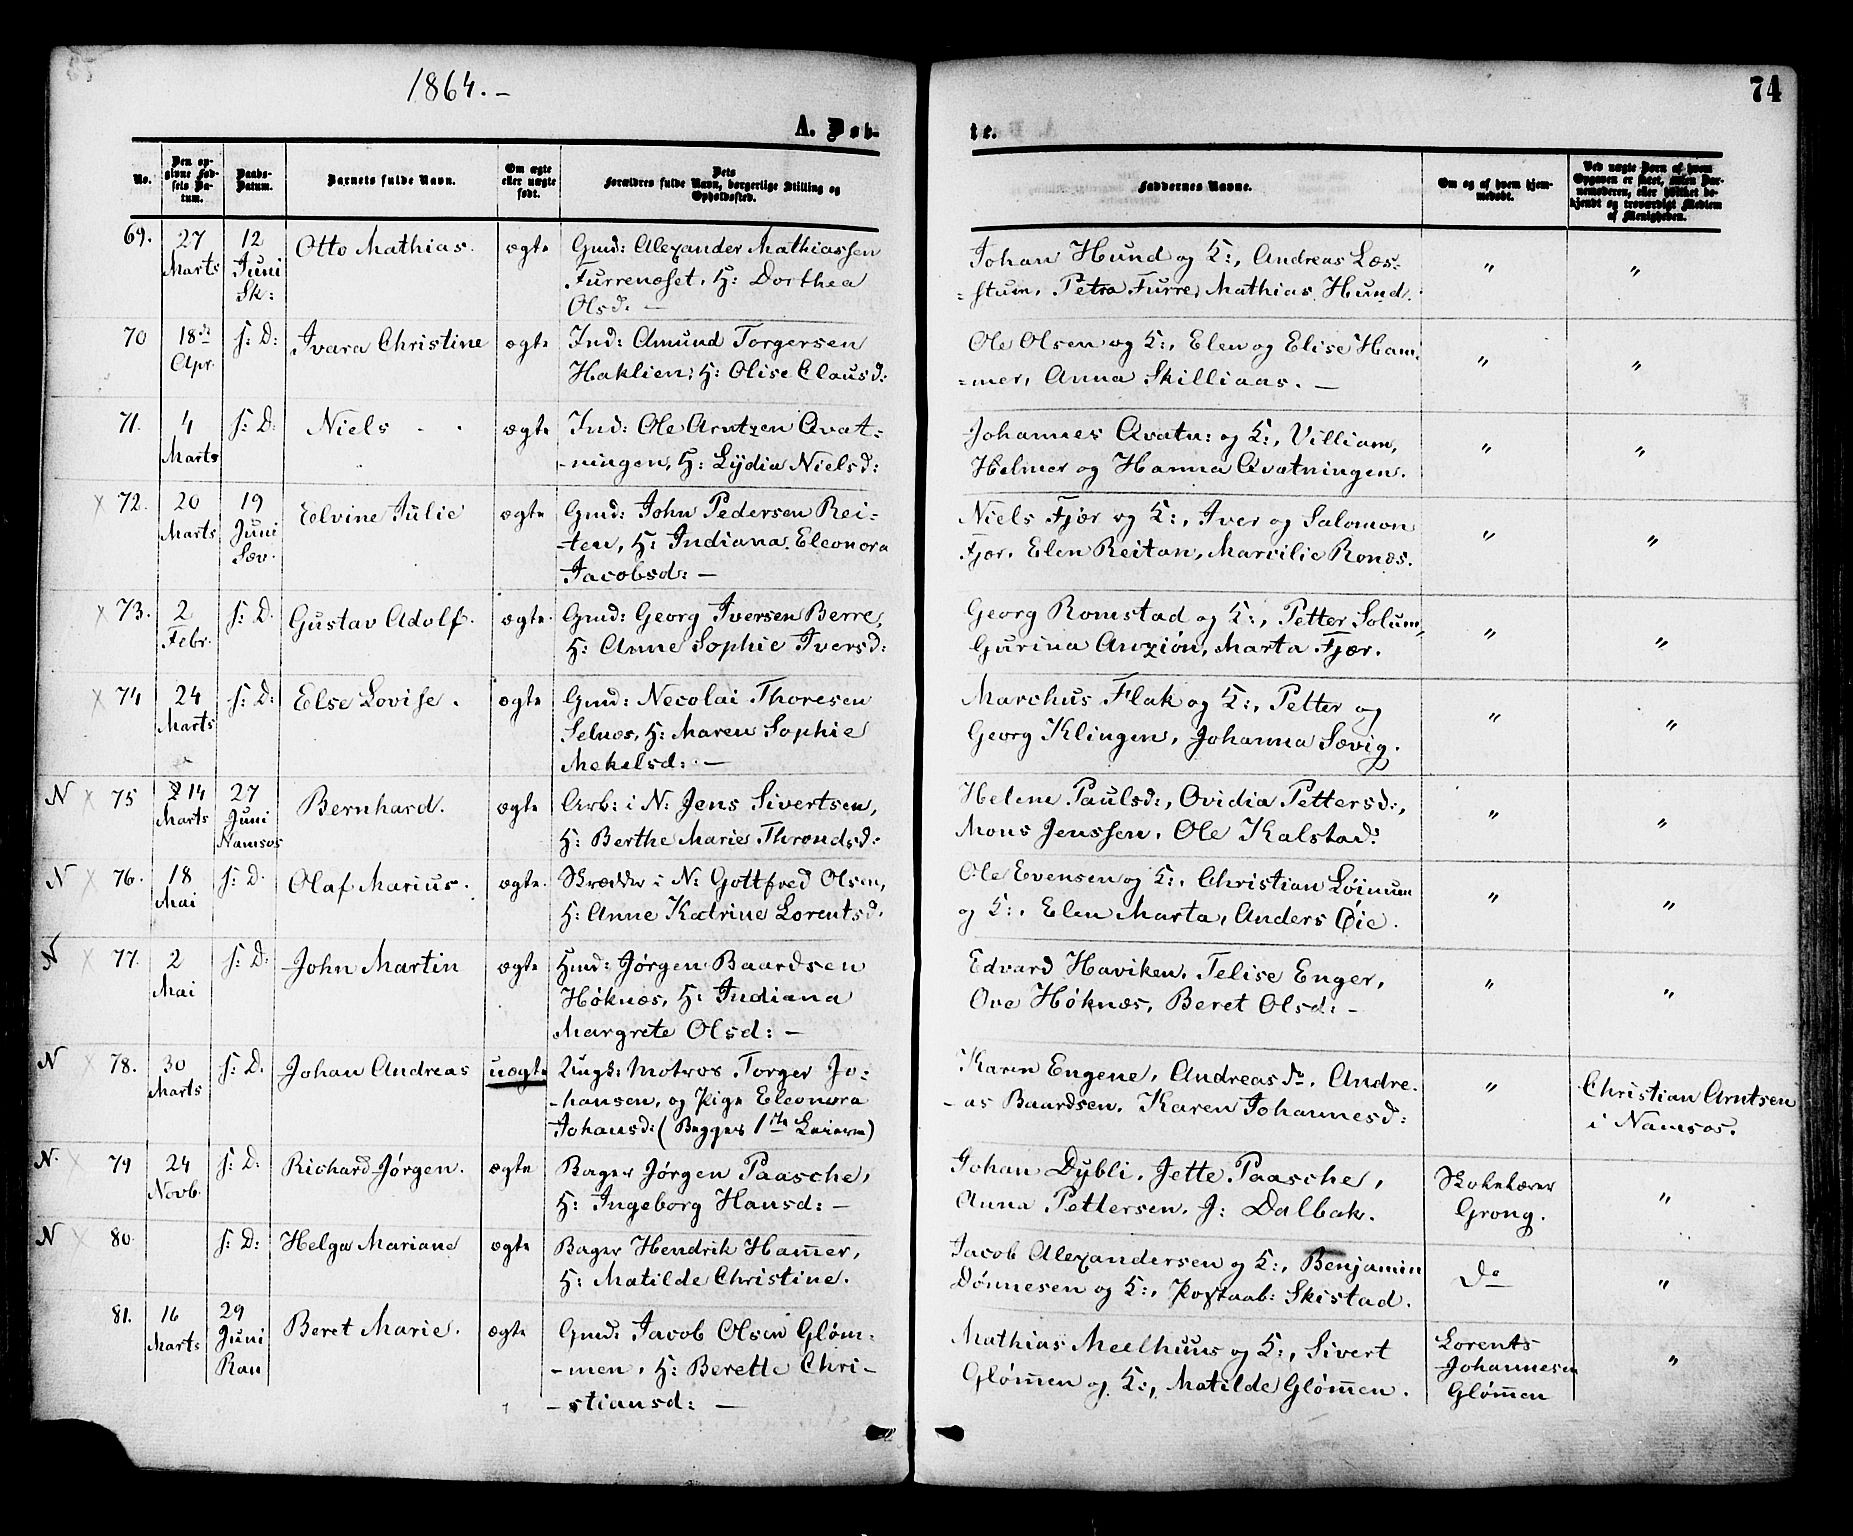 1864.-
74
A. Døb-
te.
No.
Den opgivne Fødsels Datum.
Daabs-Datum.
Barnets fulde Navn.
Om ægte eller uægte født.
Dets Forældres fulde Navn, borgerlige Stilling og Opholdssted.
Faddernes Navne.
Om og af hvem hjemmedøbt.
Ved uægte Børn af hvem Opgaven er skeet, enten Barnemoderen, eller hvilket bekjendt og troværdigt Medlem af Menigheden.
69. 27 Marts 12 Juni Sk: Otto Mathias. ægte Gmd: Alexander Mathiassen
Furrenæset, H: Dorthea
Olsd: —
Johan Hund og K:, Andreas Læs-
-stum, Petra Furre, Mathias Hund. " "
70 18de Apr. s: D: Ivara Christine ægte Ind: Amund Torgersen
Haklien; H: Olise Clausd:
Ole Olsen og K:, Elen og Elise Ham-
-mer, Anna Skilliaas. — " "
71. 4 Marts s: D: Niels ægte Ind: Ole Arntzen Qvat-
-ningen, H: Lydia Nielsd:
Johannes Qvatn: og K:, Villiam,
Helmer og Hanna Qvatningen. " "
x 72. 20 Marts 19 Juni Sæv. Edvine Julie ægte Gmd: John Pedersen Rei-
-ten, H: Indiana Eleonora
Jacobsd: —
Niels Fjær og K:, Iver og Salomon
Fjær, Elen Reitan, Marcilie Ronæs. " "
x 73. 2 Febr. s: D. Gustav Adolf. ægte. Gmd: Georg Iversen Berre,
H: Anne Sophie Iversd:
Georg Romstad og K:, Petter Solum,
Gurina Anzión, Marta Fjær. " "
x 74 24 Marts s: D: Else Lovise. ægte Gmd: Necolai Thoresen
Selnæs, H: Maren Sophie
Mekelsd: —
Marchus Flak og K:, Petter og
Georg Klingen, Johanna Sævig. " "
N x 75 14 Marts 27 Juni Namsos Bernhard. ægte Arb: i N: Jens Sivertsen,
H: Berthe Marie Throndsd:
Helene Paulsd:, Ovidia Pettersd:,
Mons Jenssen, Ole Kalstad: " "
N x 76. 18 Mai s: D. Olaf Marius. ægte. Skrædder i N: Gottfred Olsen,
H: Anne Katrine Lorentsd.
Ole Evensen og K:, Christian Løinum
og K:, Elen Marta, Anders Øie. " "
N x 77. 2 Mai s: D: John Martin ægte Hmd: Jørgen Baardsen
Høknæs, H: Indiana
Margrete Olsd: —
Edvard Haviken, Telise Enger,
Ove Høknæs, Beret Olsd: - " "
N x 78. 30 Marts s: D. Johan Andreas uægte Ungk: Matros Torger Jo-
-hansen, og Pige Eleonora
Johansd: (Begges 1ste Leierm)
Karen Engene, Andreas do, Andre-
-as Baardsen, Karen Johannesd: " Christian Arntsen
i Namsos.
N. x 79 24 Novb. s: D. Richard Jørgen. ægte Bager Jørgen Paasche,
H: Ingeborg Hansd: —
Johan Dybli, Jette Paasche,
Anna Pettersen, J: Dalbak.
Skolelærer
Grong. "
N x 80. s: D: Helga Mariane ægte Bager Hendrik Ham̄er,
H: Matilde Christine.
Jacob Alexandersen og K:, Benjamin
Dønnesen og K:, Postaab: Skistad. Do "
81. 16 Marts 29 Juni Ran Beret Marie. ægte Gmd: Jacob Olsen Gløm-
-men, H: Berette Chri-
-stiansd: —
Mathias Meelhuus og K:, Sivert
Gløm̄en og K:, Matilde Gløm̄en.
Lorents
Johannesen
Gløm̄en "